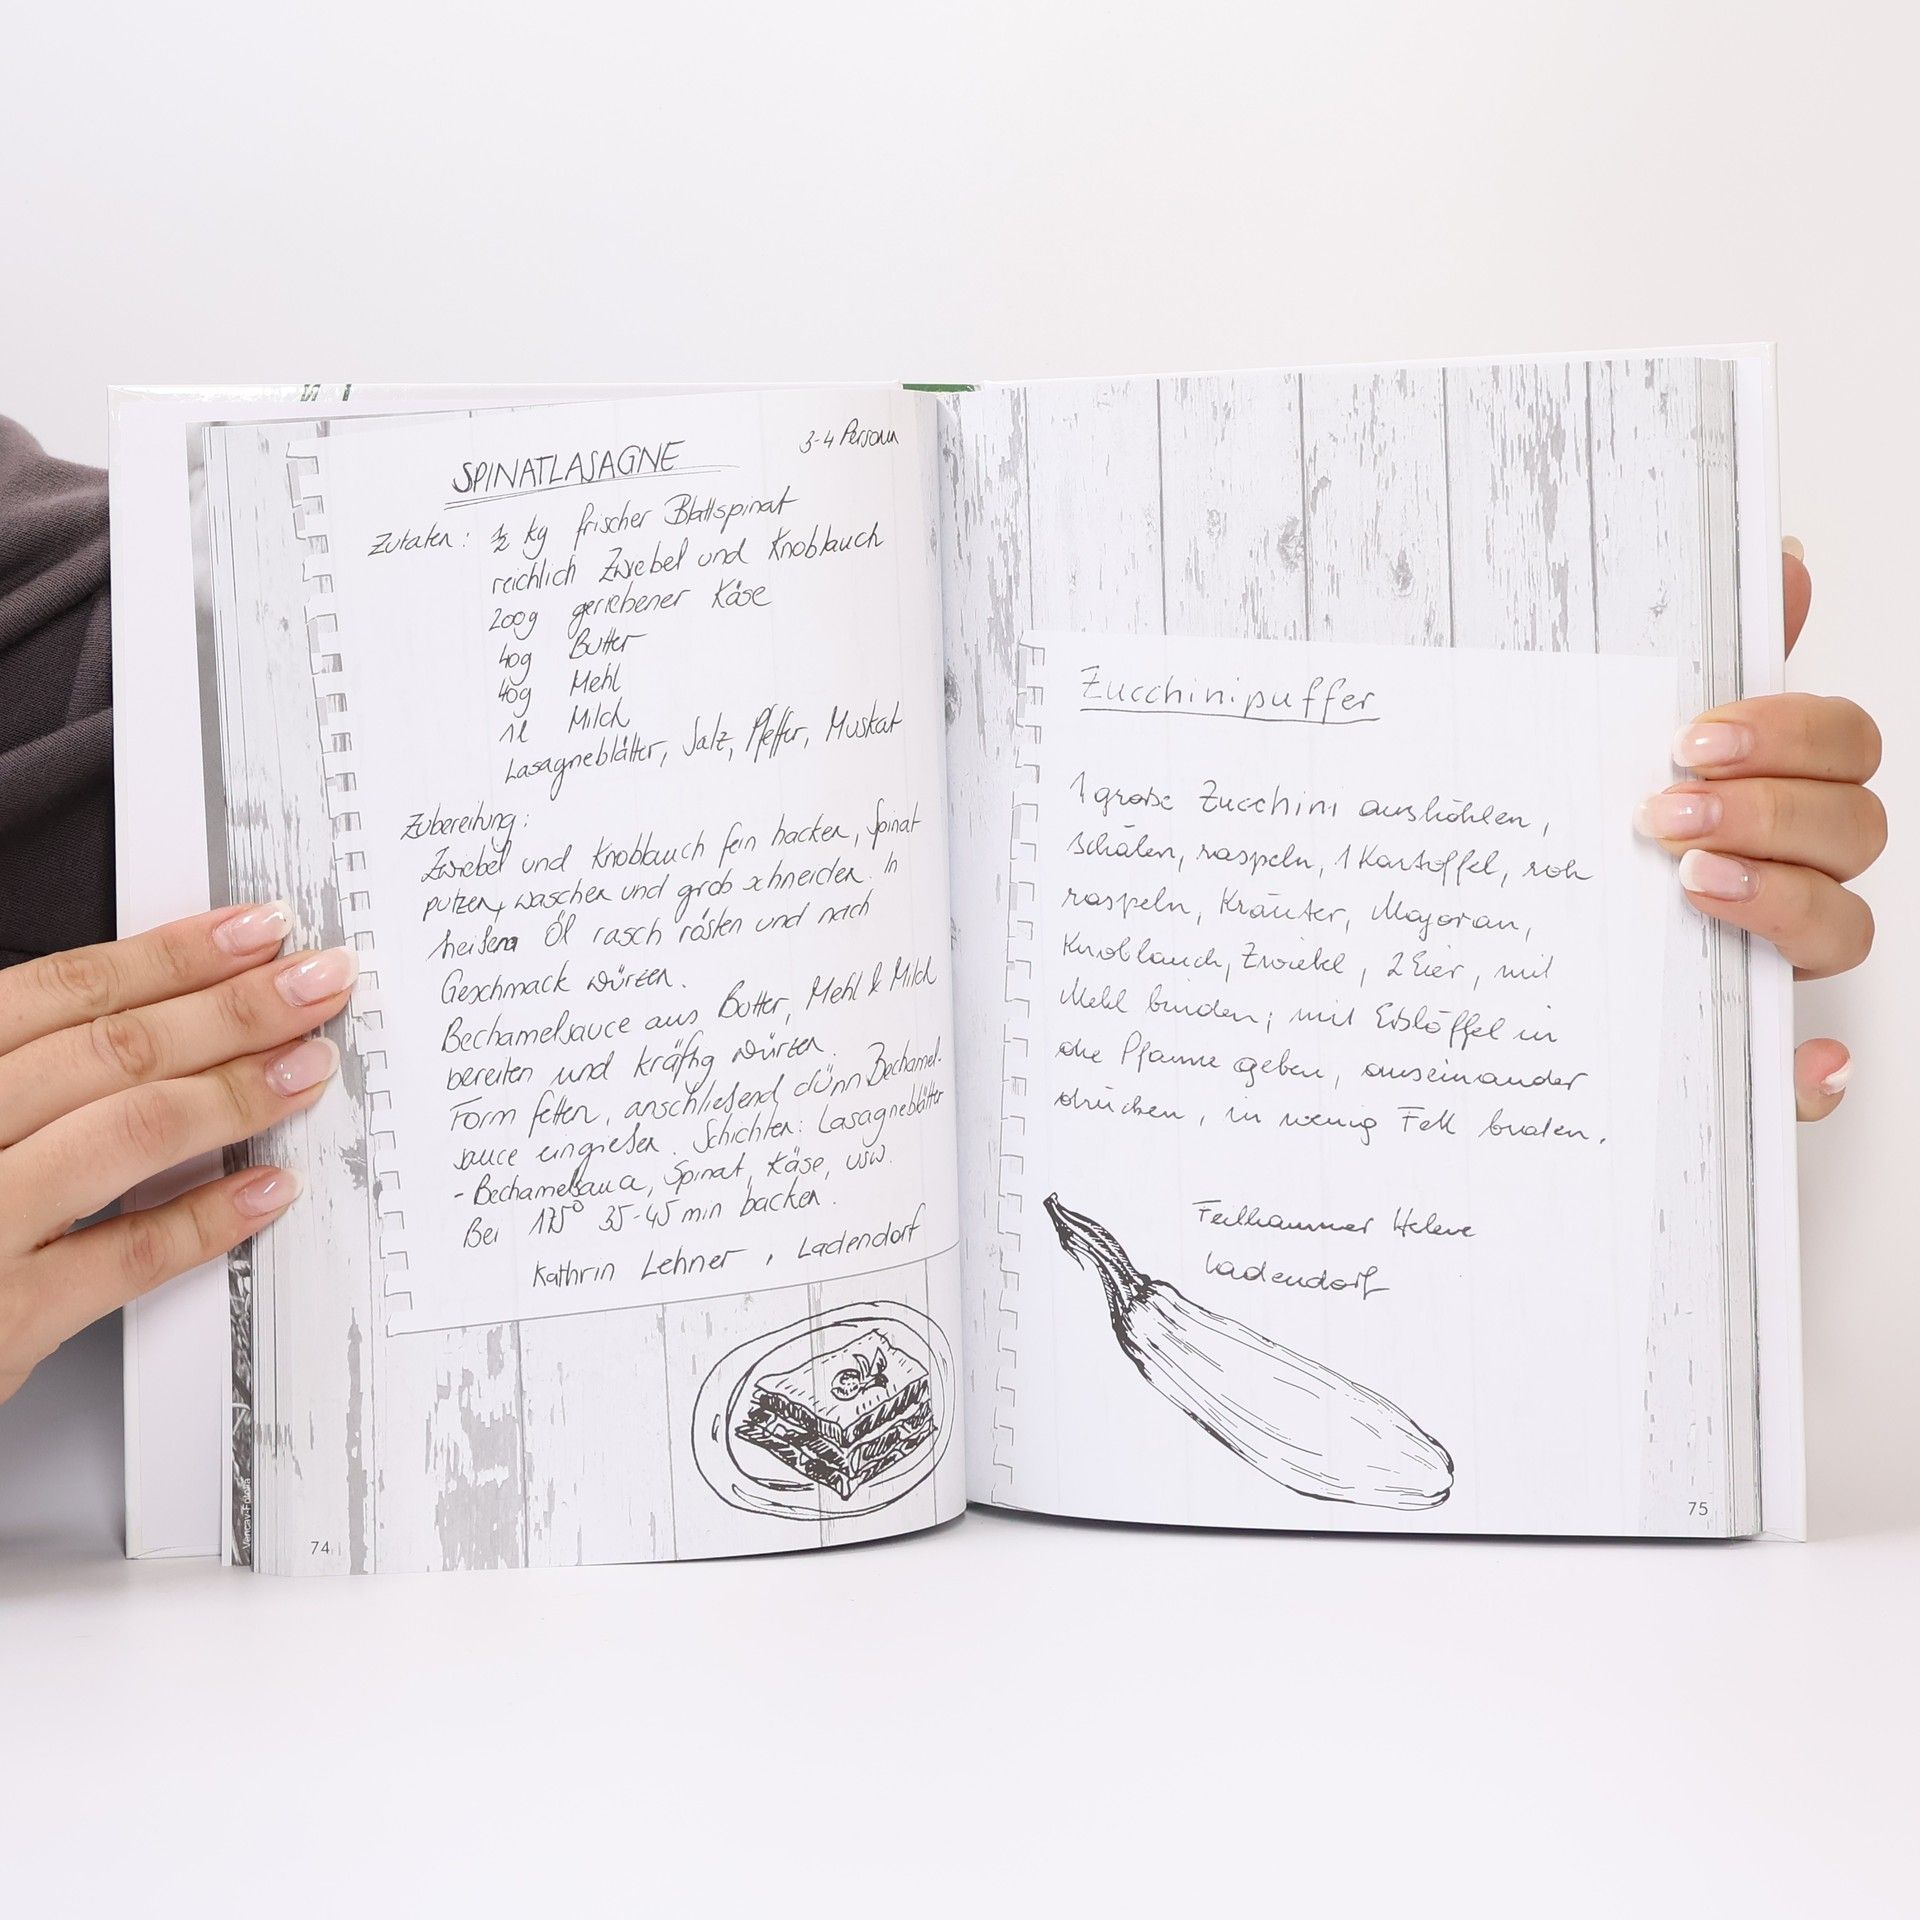 SPINATLASAGNE
3-4 Personen
Zutaten: ½ kg frischer Blattspinat
reichlich Zwiebel und Knoblauch
200g geriebener Käse
40g Butter
40g Mehl
1l Milch
Lasagneblätter, Salz, Pfeffer, Muskat
Zubereitung:
Zwiebel und Knoblauch fein hacken, Spinat
putzen, waschen und grob schneiden. In
heißem Öl rasch rösten und nach
Geschmack würzen.
Bechamelsauce aus Butter, Mehl & Milch
bereiten und kräftig würzen.
Form fetten, anschließend dünn Bechamel-
sauce eingießen. Schichten: Lasagneblätter
- Bechamelsauce, Spinat, Käse, usw.
Bei 175° 35-45 min backen.
Kathrin Lehner, Ladendorf
Vencav-Fotolia
74
Zucchinipuffer
1 große Zucchini aushöhlen,
schälen, raspeln, 1 Kartoffel, roh
raspeln, Kräuter, Majoran,
Knoblauch, Zwiebel, 2 Eier, mit
Mehl binden; mit Eßlöffel in
die Pfanne geben, auseinander
drücken, in wenig Fett braten.
Feilhammer Helene
Ladendorf
75